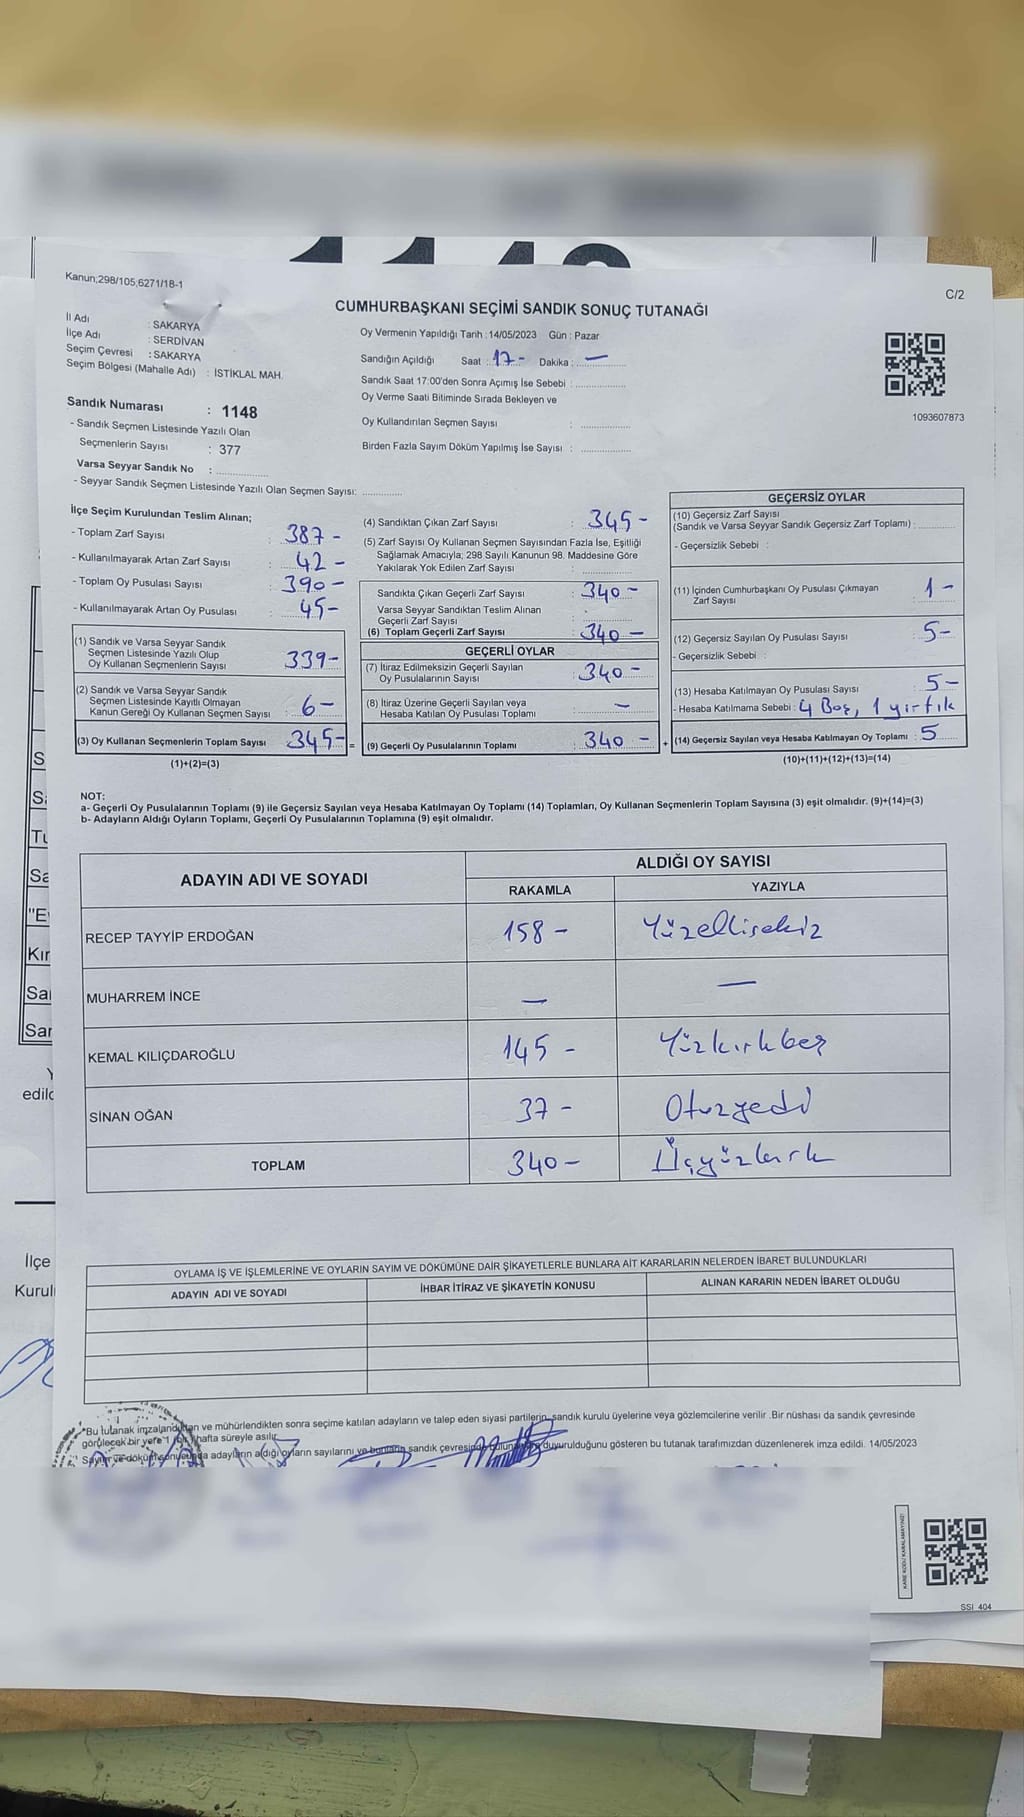 Kanun;298/105,6271/18-1
C/2
CUMHURBAŞKANI SEÇİMİ SANDIK SONUÇ TUTANAĞI
İl Adı : SAKARYA
İlçe Adı : SERDİVAN
Seçim Çevresi : SAKARYA
Seçim Bölgesi (Mahalle Adı) : İSTİKLAL MAH.
Oy Vermenin Yapıldığı Tarih : 14/05/2023 Gün : Pazar
Sandığın Açıldığı Saat : 17- Dakika : —
Sandık Saat 17:00'den Sonra Açımış İse Sebebi :
Oy Verme Saati Bitiminde Sırada Bekleyen ve
Oy Kullandırılan Seçmen Sayısı :
Birden Fazla Sayım Döküm Yapılmış İse Sayısı :
1093607873
Sandık Numarası : 1148
- Sandık Seçmen Listesinde Yazılı Olan
Seçmenlerin Sayısı : 377
Varsa Seyyar Sandık No :
- Seyyar Sandık Seçmen Listesinde Yazılı Olan Seçmen Sayısı:
İlçe Seçim Kurulundan Teslim Alınan;
- Toplam Zarf Sayısı : 387 -
- Kullanılmayarak Artan Zarf Sayısı : 42 -
- Toplam Oy Pusulası Sayısı : 390 -
- Kullanılmayarak Artan Oy Pusulası : 45-
(1) Sandık ve Varsa Seyyar Sandık
Seçmen Listesinde Yazılı Olup
Oy Kullanan Seçmenlerin Sayısı 339-
(2) Sandık ve Varsa Seyyar Sandık
Seçmen Listesinde Kayıtlı Olmayan
Kanun Gereği Oy Kullanan Seçmen Sayısı : 6-
(3) Oy Kullanan Seçmenlerin Toplam Sayısı 345- =
(1)+(2)=(3)
(4) Sandıktan Çıkan Zarf Sayısı : 345-
(5) Zarf Sayısı Oy Kullanan Seçmen Sayısından Fazla İse, Eşitliği
Sağlamak Amacıyla; 298 Sayılı Kanunun 98. Maddesine Göre
Yakılarak Yok Edilen Zarf Sayısı :
Sandıkta Çıkan Geçerli Zarf Sayısı : 340 -
Varsa Seyyar Sandıktan Teslim Alınan
Geçerli Zarf Sayısı :
(6) Toplam Geçerli Zarf Sayısı : 340 -
GEÇERLİ OYLAR
(7) İtiraz Edilmeksizin Geçerli Sayılan
Oy Pusulalarının Sayısı : 340 -
(8) İtiraz Üzerine Geçerli Sayılan veya
Hesaba Katılan Oy Pusulası Toplamı —
(9) Geçerli Oy Pusulalarının Toplamı : 340 - +
GEÇERSİZ OYLAR
(10) Geçersiz Zarf Sayısı
(Sandık ve Varsa Seyyar Sandık Geçersiz Zarf Toplamı) :
- Geçersizlik Sebebi :
(11) İçinden Cumhurbaşkanı Oy Pusulası Çıkmayan
Zarf Sayısı : 1 -
(12) Geçersiz Sayılan Oy Pusulası Sayısı : 5-
- Geçersizlik Sebebi :
(13) Hesaba Katılmayan Oy Pusulası Sayısı : 5-
- Hesaba Katılmama Sebebi : 4 Boş, 1 yırtık
(14) Geçersiz Sayılan veya Hesaba Katılmayan Oy Toplamı : 5
(10)+(11)+(12)+(13)=(14)
NOT:
a- Geçerli Oy Pusulalarının Toplamı (9) ile Geçersiz Sayılan veya Hesaba Katılmayan Oy Toplamı (14) Toplamları, Oy Kullanan Seçmenlerin Toplam Sayısına (3) eşit olmalıdır. (9)+(14)=(3)
b- Adayların Aldığı Oyların Toplamı, Geçerli Oy Pusulalarının Toplamına (9) eşit olmalıdır.
ADAYIN ADI VE SOYADI
ALDIĞI OY SAYISI
RAKAMLA YAZIYLA
RECEP TAYYİP ERDOĞAN 158 - Yüzellisekiz
MUHARREM İNCE — —
KEMAL KILIÇDAROĞLU 145 - Yüzkırkbeş
SİNAN OĞAN 37 - Otuzyedi
TOPLAM 340 - Üçyüzkırk
OYLAMA İŞ VE İŞLEMLERİNE VE OYLARIN SAYIM VE DÖKÜMÜNE DAİR ŞİKAYETLERLE BUNLARA AİT KARARLARIN NELERDEN İBARET BULUNDUKLARI
ADAYIN ADI VE SOYADI İHBAR İTİRAZ VE ŞİKAYETİN KONUSU ALINAN KARARIN NEDEN İBARET OLDUĞU
*Bu tutanak imzalandıktan ve mühürlendikten sonra seçime katılan adayların ve talep eden siyasi partilerin, sandık kurulu üyelerine veya gözlemcilerine verilir .Bir nüshası da sandık çevresinde
görülecek bir yere 1 (bir) hafta süreyle asılır.
Sayım ve döküm sonucunda adayların aldığı oyların sayılarını ve bunların sandık çevresinde duyurulduğunu gösteren bu tutanak tarafımızdan düzenlenerek imza edildi. 14/05/2023
KARE KODU KARALAMAYINIZ!
SSİ 404
S
Sa
"E
Kır
Sa
Sar
edild
İlçe
Kurul